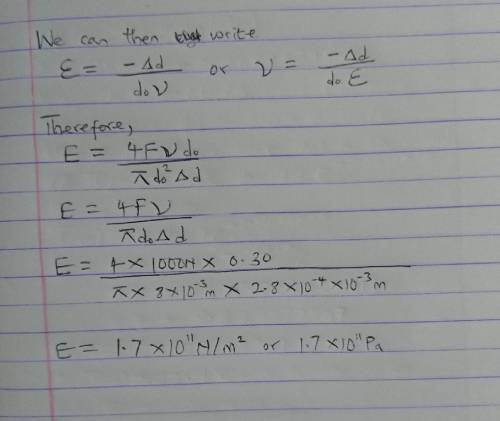 We can then write
ε = -Δd / d₀ν or ν = -Δd / d₀ε
Therefore,
E = 4Fνd₀ / πd₀²Δd
E = 4Fν / πd₀Δd
E = 4 × 1000N × 0.30 / π × 8×10⁻³m × 2.8×10⁻⁴ ×10⁻³m
E = 1.7 ×10¹¹N/m² or 1.7×10¹¹Pa